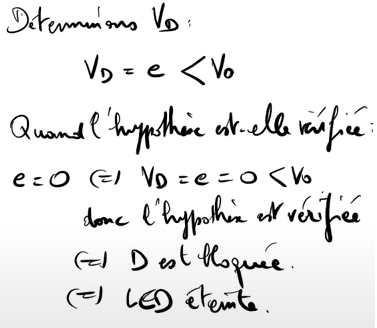 Déterminons VD :
VD = e < Vo
Quand l'hypothèse est-elle vérifiée :
e = 0 (=) VD = e = 0 < Vo
donc l'hypothèse est vérifiée
(=) D est bloquée.
(=) LED éteinte.